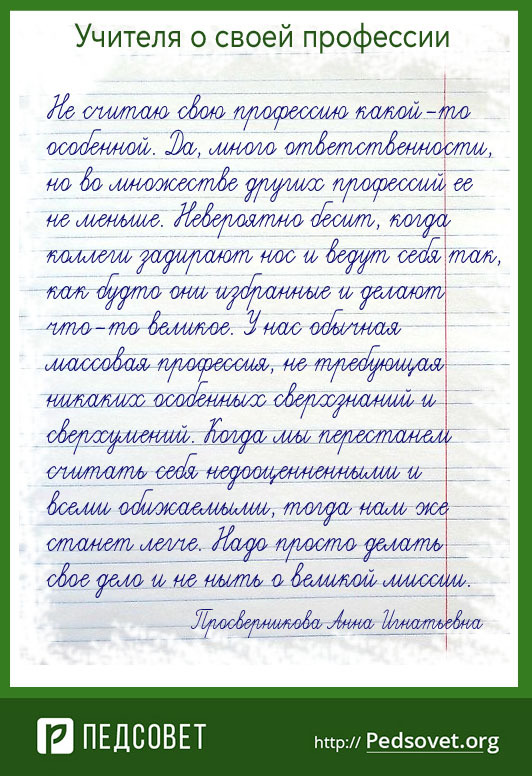 Учителя о своей профессии
Не считаю свою профессию какой-то
особенной. Да, много ответственности,
но во множестве других профессий ее
не меньше. Невероятно бесит, когда
коллеги задирают нос и ведут себя так,
как будто они избранные и делают
что-то великое. У нас обычная
массовая профессия, не требующая
никаких особенных сверхзнаний и
сверхумений. Когда мы перестанем
считать себя недооцененными и
всеми обижаемыми, тогда нам же
станет легче. Надо просто делать
свое дело и не ныть о великой миссии.
Просверникова Анна Игнатьевна
ПЕДСОВЕТ
http:// Pedsovet.org